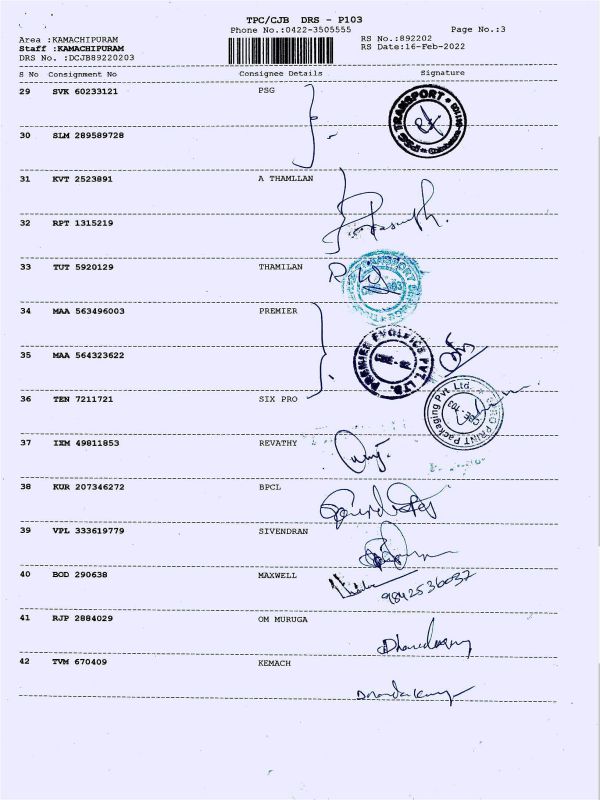 TPC/CJB DRS - P103
Phone No.:0422-3505555
Page No.:3
Area :KAMACHIPURAM
RS No.:892202
Staff :KAMACHIPURAM
RS Date:16-Feb-2022
DRS No. :DCJB89220203
S No Consignment No Consignee Details Signature
29 SVK 60233121 PSG
PSG TRANSPORT
30 SLM 289589728
31 KVT 2523891 A THAMLLAN
32 RPT 1315219
33 TUT 5920129 THAMILAN
34 MAA 563496003 PREMIER
PREMIER EVOLVICS PVT. LTD.
35 MAA 564323622
36 TEN 7211721 SIX PRO
PRINT Packaging Pvt Ltd.
37 IXM 49811853 REVATHY
38 KUR 207346272 BPCL
39 VPL 333619779 SIVENDRAN
40 BOD 290638 MAXWELL
9842536032
41 RJP 2884029 OM MURUGA
42 TVM 670409 KEMACH